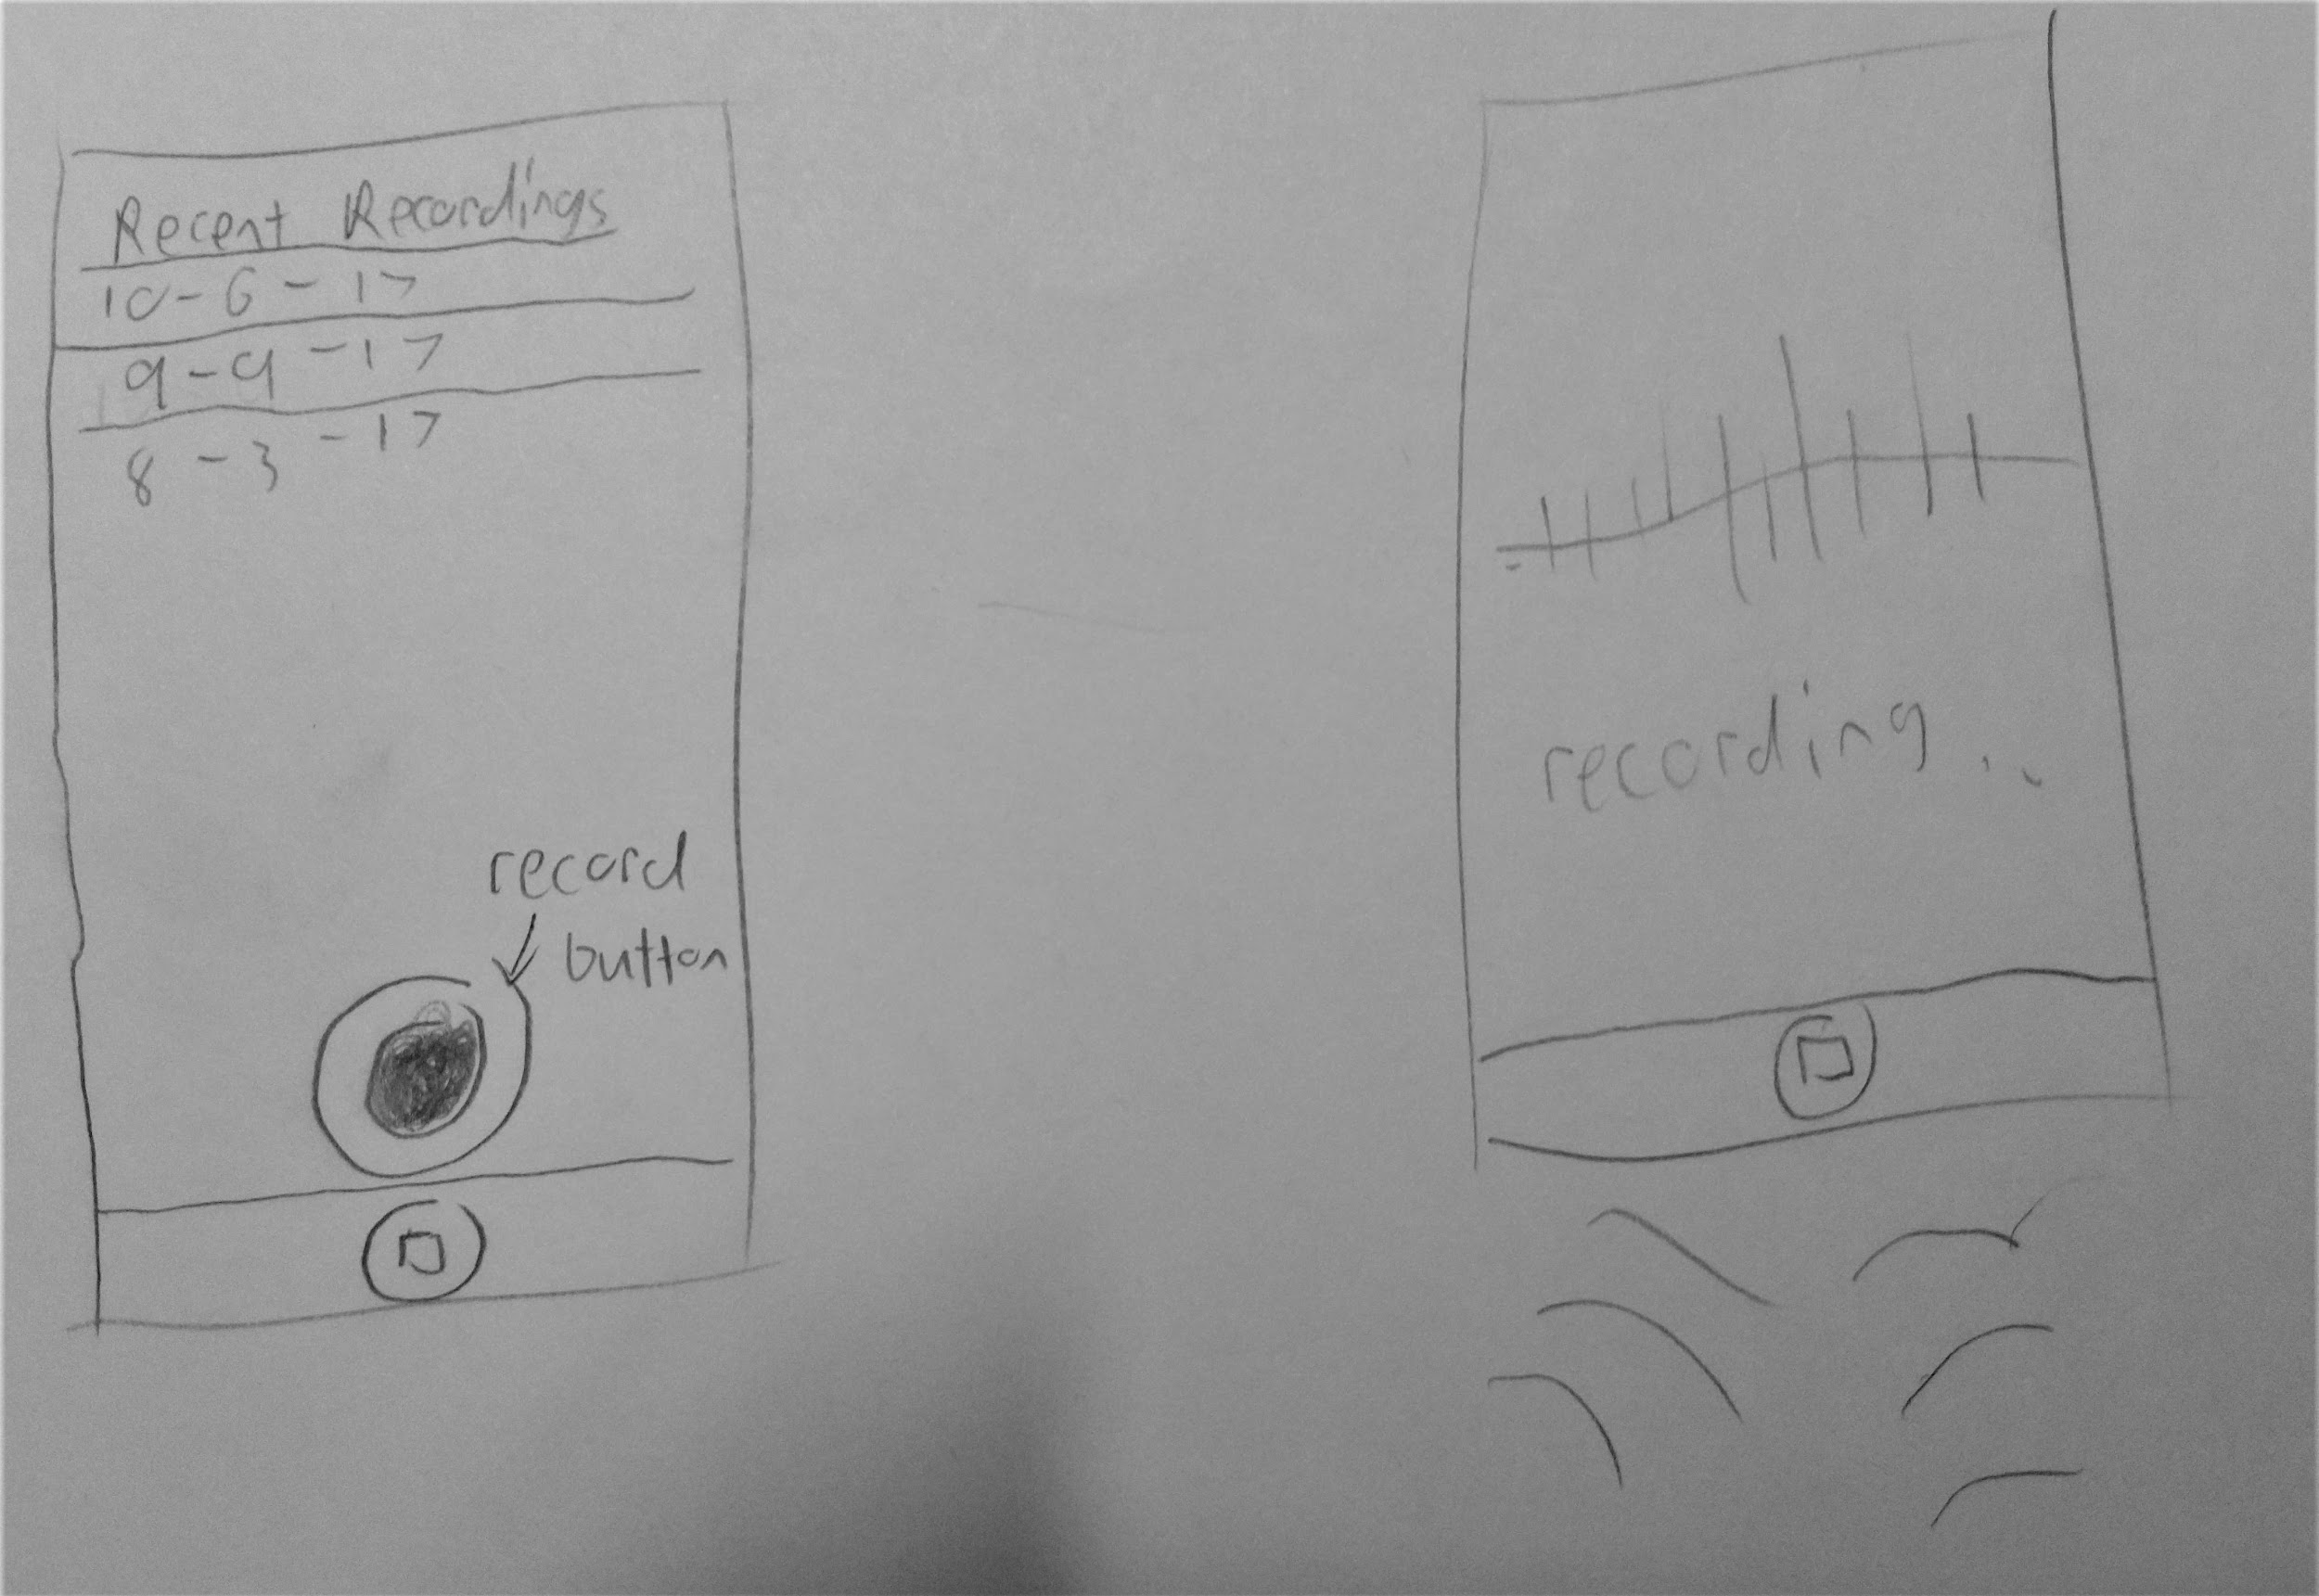 Recent Recordings
10-6-17
9-9-17
8-3-17
record
button
recording..